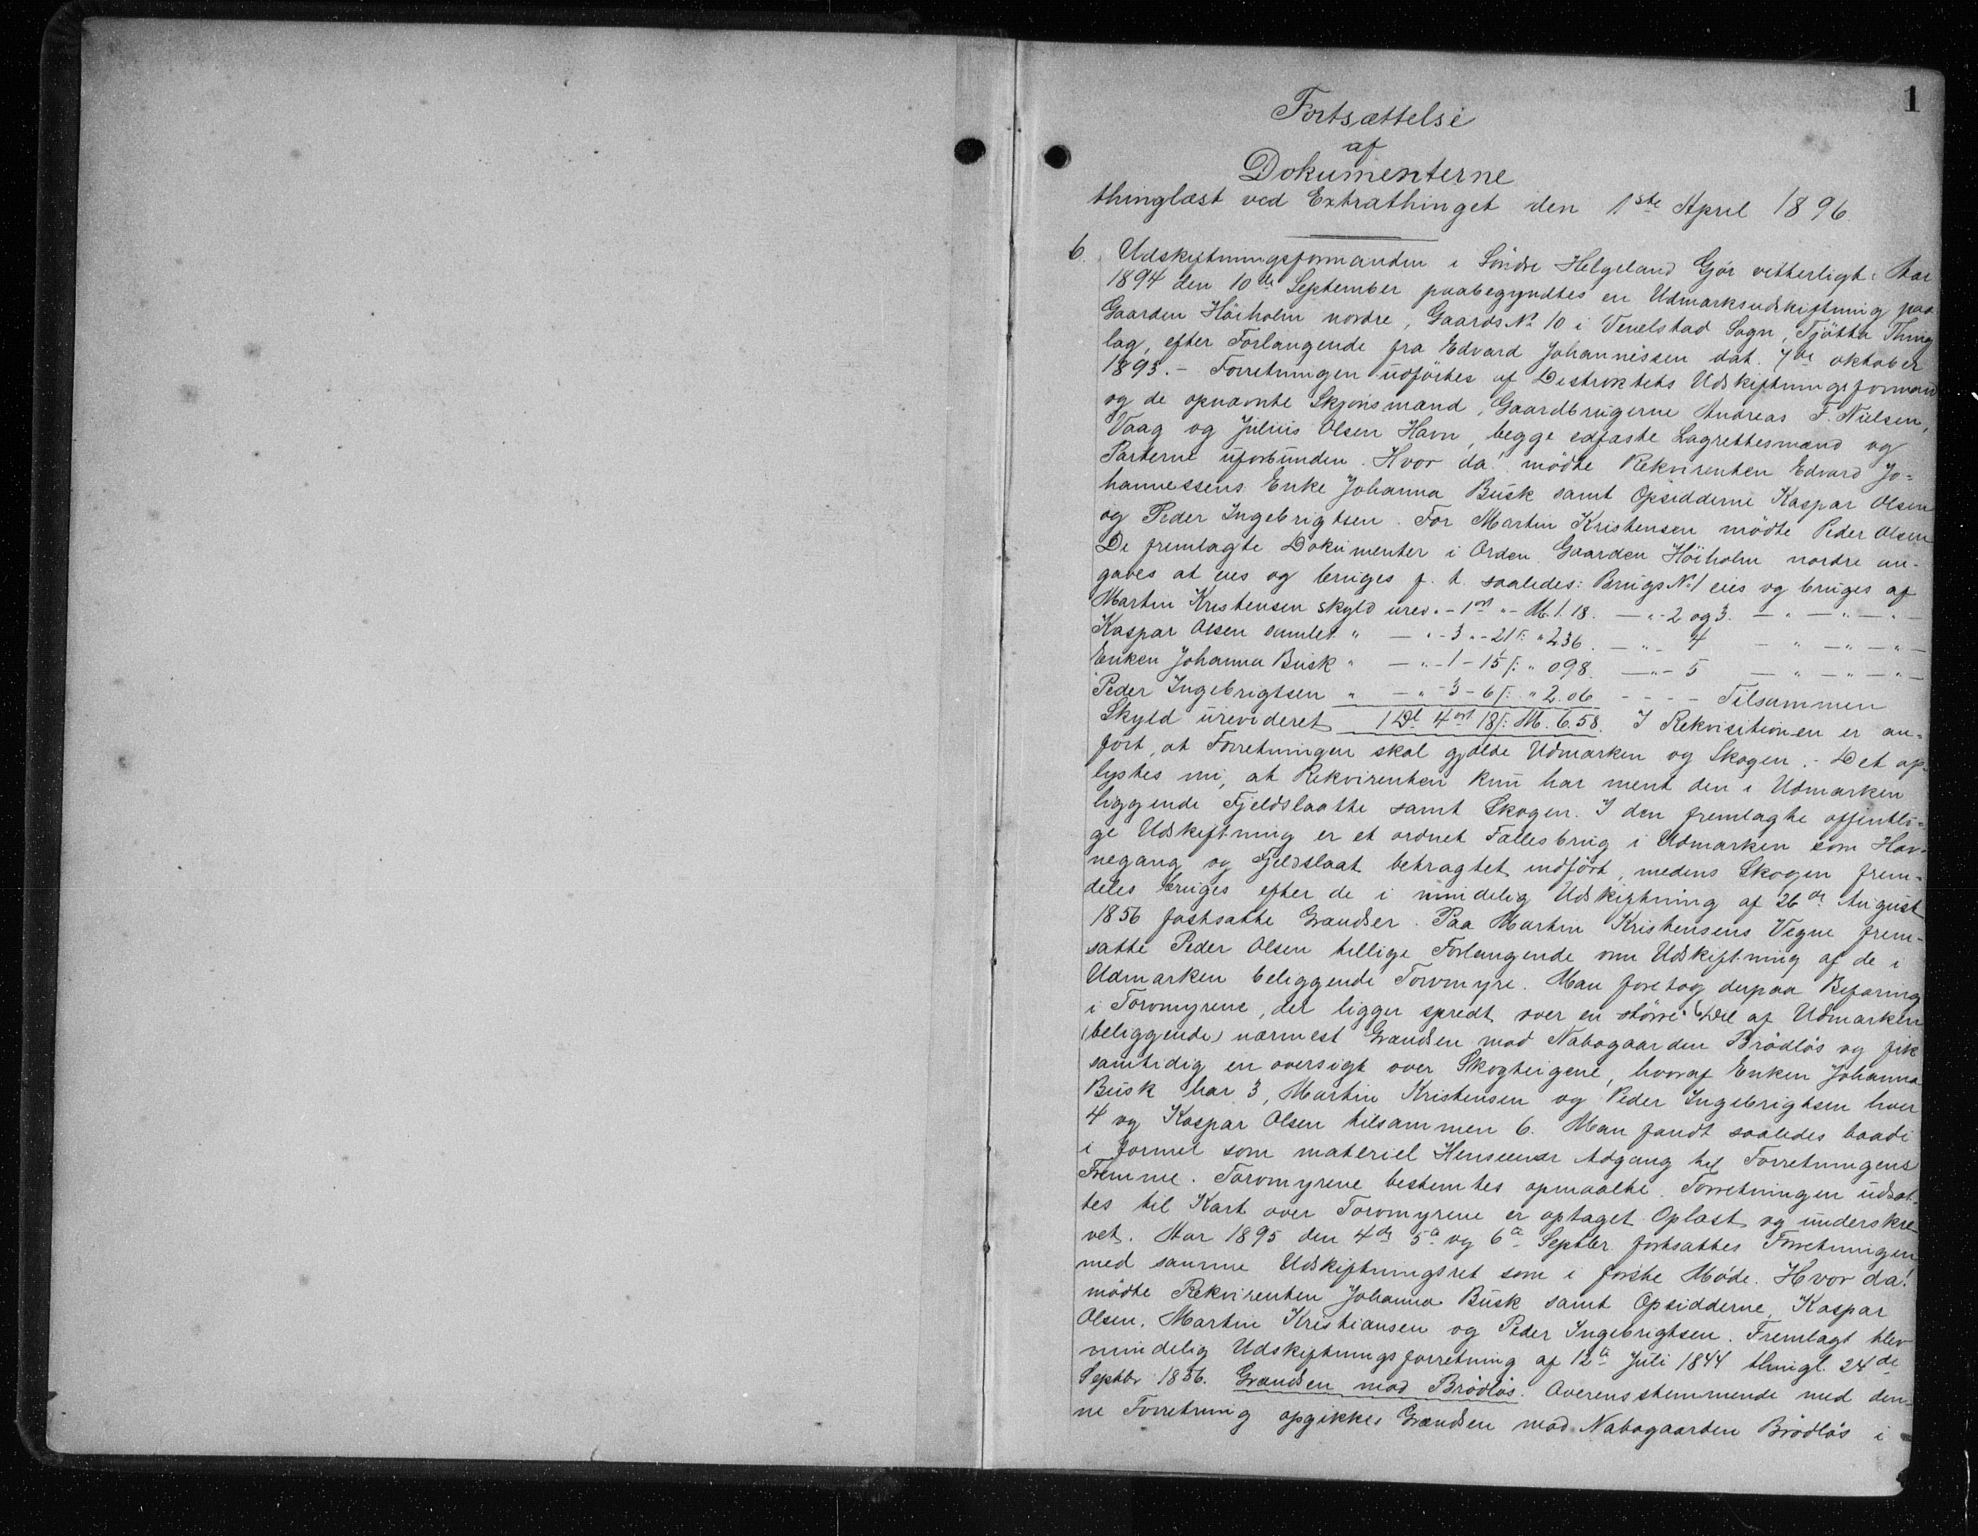 1
Fortsættelse
af
Dokumenterne
thinglæst ved Extrathinget den 1ste April 1896.
6. Udskiftningsformanden i Söndre Helgeland Gjör vitterligt: Aar
1894 den 10de September paabegyndtes en Udmarksudskiftning paa
Gaarden Höiholm nordre, Gaards No 10 i Vevelstad Sogn, Tjötta Thing
lag, efter Forlangende fra Edvard Johannissen dat. 7de oktober
1893. - Forretningen udförtes af Distriktets Udskiftningsformand
og de opnævnte Skjönsmænd, Gaardbrugerne Andreas F. Nielsen,
Vaag og Julius Olsen Havn, begge edfæste Lagrettesmænd og
Parterne uforbunden. Hvor da! mödte Rekvirenten Edvard Jo=
hannessens Enke Johanna Busk samt Opsidderne Kaspar Olsen
og Peder Ingebrigtsen. For Martin Kristensen mödte Peder Olsen
De fremlagte Dokumenter i Orden. Gaarden Höiholm nordre an-
gaves at eies og bruges f. t. saaledes: Brugs No 1 eies og bruges af
Martin Kristensen skyld urev. - 1 ort " - M. 1.18. - " - 2 og 3. - " - " - " -
Kaspar Olsen samlet " - " - 3 " - 21 ß: " 2.36. - " - 4 - " - " - " -
Enken Johanna Busk " - " - 1 - 15 ß: " 0 98. - " - 5 - " - " - " -
Peder Ingebrigtsen " - " - 3 - 6 ß: " 2.06 - - - - Tilsammen
Skyld urevideret 1 Dl 4 ort 18 ß: M. 6.58. I Rekvisitionen er an=
fört, at Forretningen skal gjælde Udmarken og Skogen. - Det op-
lystes nu, at Rekvirenten kun har ment den i Udmarken
liggende Fjeldslaatte samt Skogen. I den fremlagte offentli=
ge Udskiftning er et ordnet Fællesbrug i Udmarken som Hav-
negang og Fjeldslaat betragtet indfört, medens Skogen frem-
deles bruges efter de i mindelig Udskiftning af 26de August
1856 fastsatte Grændser. Paa Martin Kristensens Vegne frem-
satte Peder Olsen tillige Forlangende om Udskiftning af de i
Udmarken beliggende Torvmyre. Man foretog derpaa Befaring
i Torvmyrene, der ligger spredt over en större Del af Udmarken
(beliggende) nærmest Grændsen mod Nabogaarden Brödlös og fik
samtidig en oversigt over Skogteigene, hvoraf Enken Johanna
Busk har 3, Martin Kristensen og Peder Ingebrigtsen hver
4 og Kaspar Olsen tilsammen 6. Man fandt saaledes baade
i formel som materiel Henseende Adgang til Forretningens
Fremme. Torvmyrene bestemtes opmaalte. Forretningen udsat-
tes til Kart over Torvmyrene er optaget. Oplæst og underskre
vet. Aar 1895 den 4de 5te og 6te Septbr fortsattes Forretningen
med samme Udskiftningsret som i förste Möde. Hvor da!
mödte Rekvirenten Johanna Busk samt Opsidderne, Kaspar
Olsen, Martin Kristiansen og Peder Ingebrigtsen. Fremlagt blev
mindelig Udskiftningsforretning af 12te Juli 1844 thingl. 24de
Septbr 1856. Grændsen mod Brödlös. Overensstemmende med den-
ne Forretning opgikkes Grændsen mod Nabogaarden Brödlös i